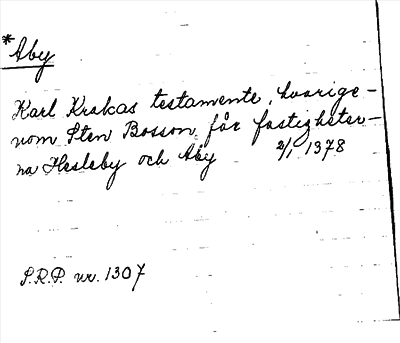 *Aby
Karl Krakas testamente, hvarige-
nom Sten Bosson får fastigheter-
na Hesleby och Aby 2/1 1378
S.R.P. nr. 1307